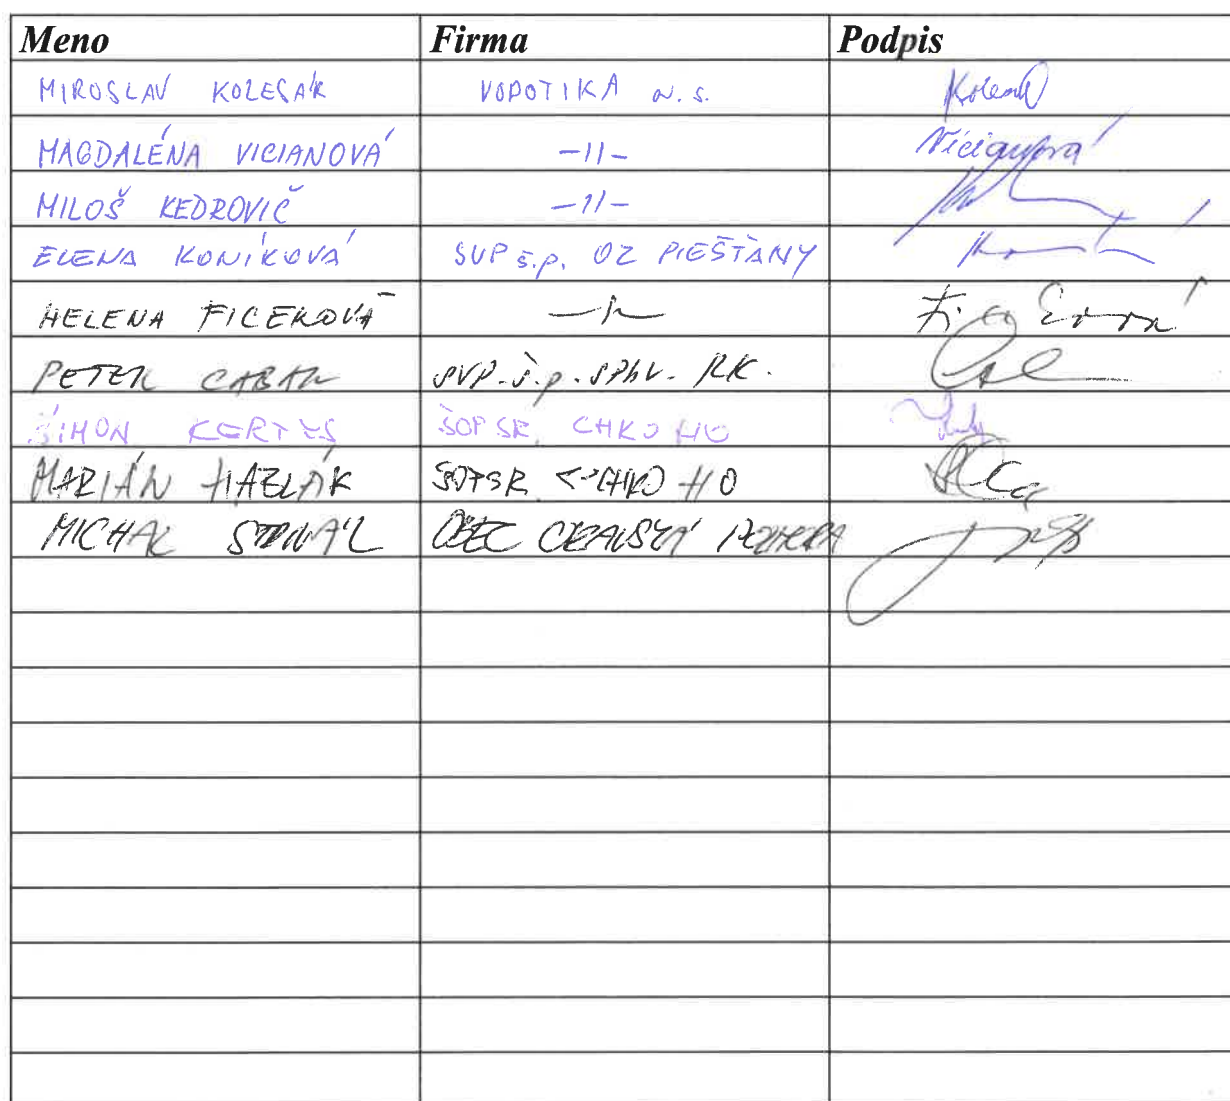 Meno Firma Podpis
MIROSLAV KOLESÁR VODOTIKA a.s.
MAGDALÉNA VICIANOVÁ -11- Vicianová
MILOŠ KEDROVIČ -11-
ELENA KONÍKOVÁ SVP š.p. OZ PIEŠŤANY
HELENA FICEROVÁ
PETER CABAN SVP. š.p. SPhV. RK.
ŠIMON KERTYS ŠOP SR, CHKO HO
MARIÁN ŠOPSR CHKO HO
MICHAL OBEC ORAVSKÁ